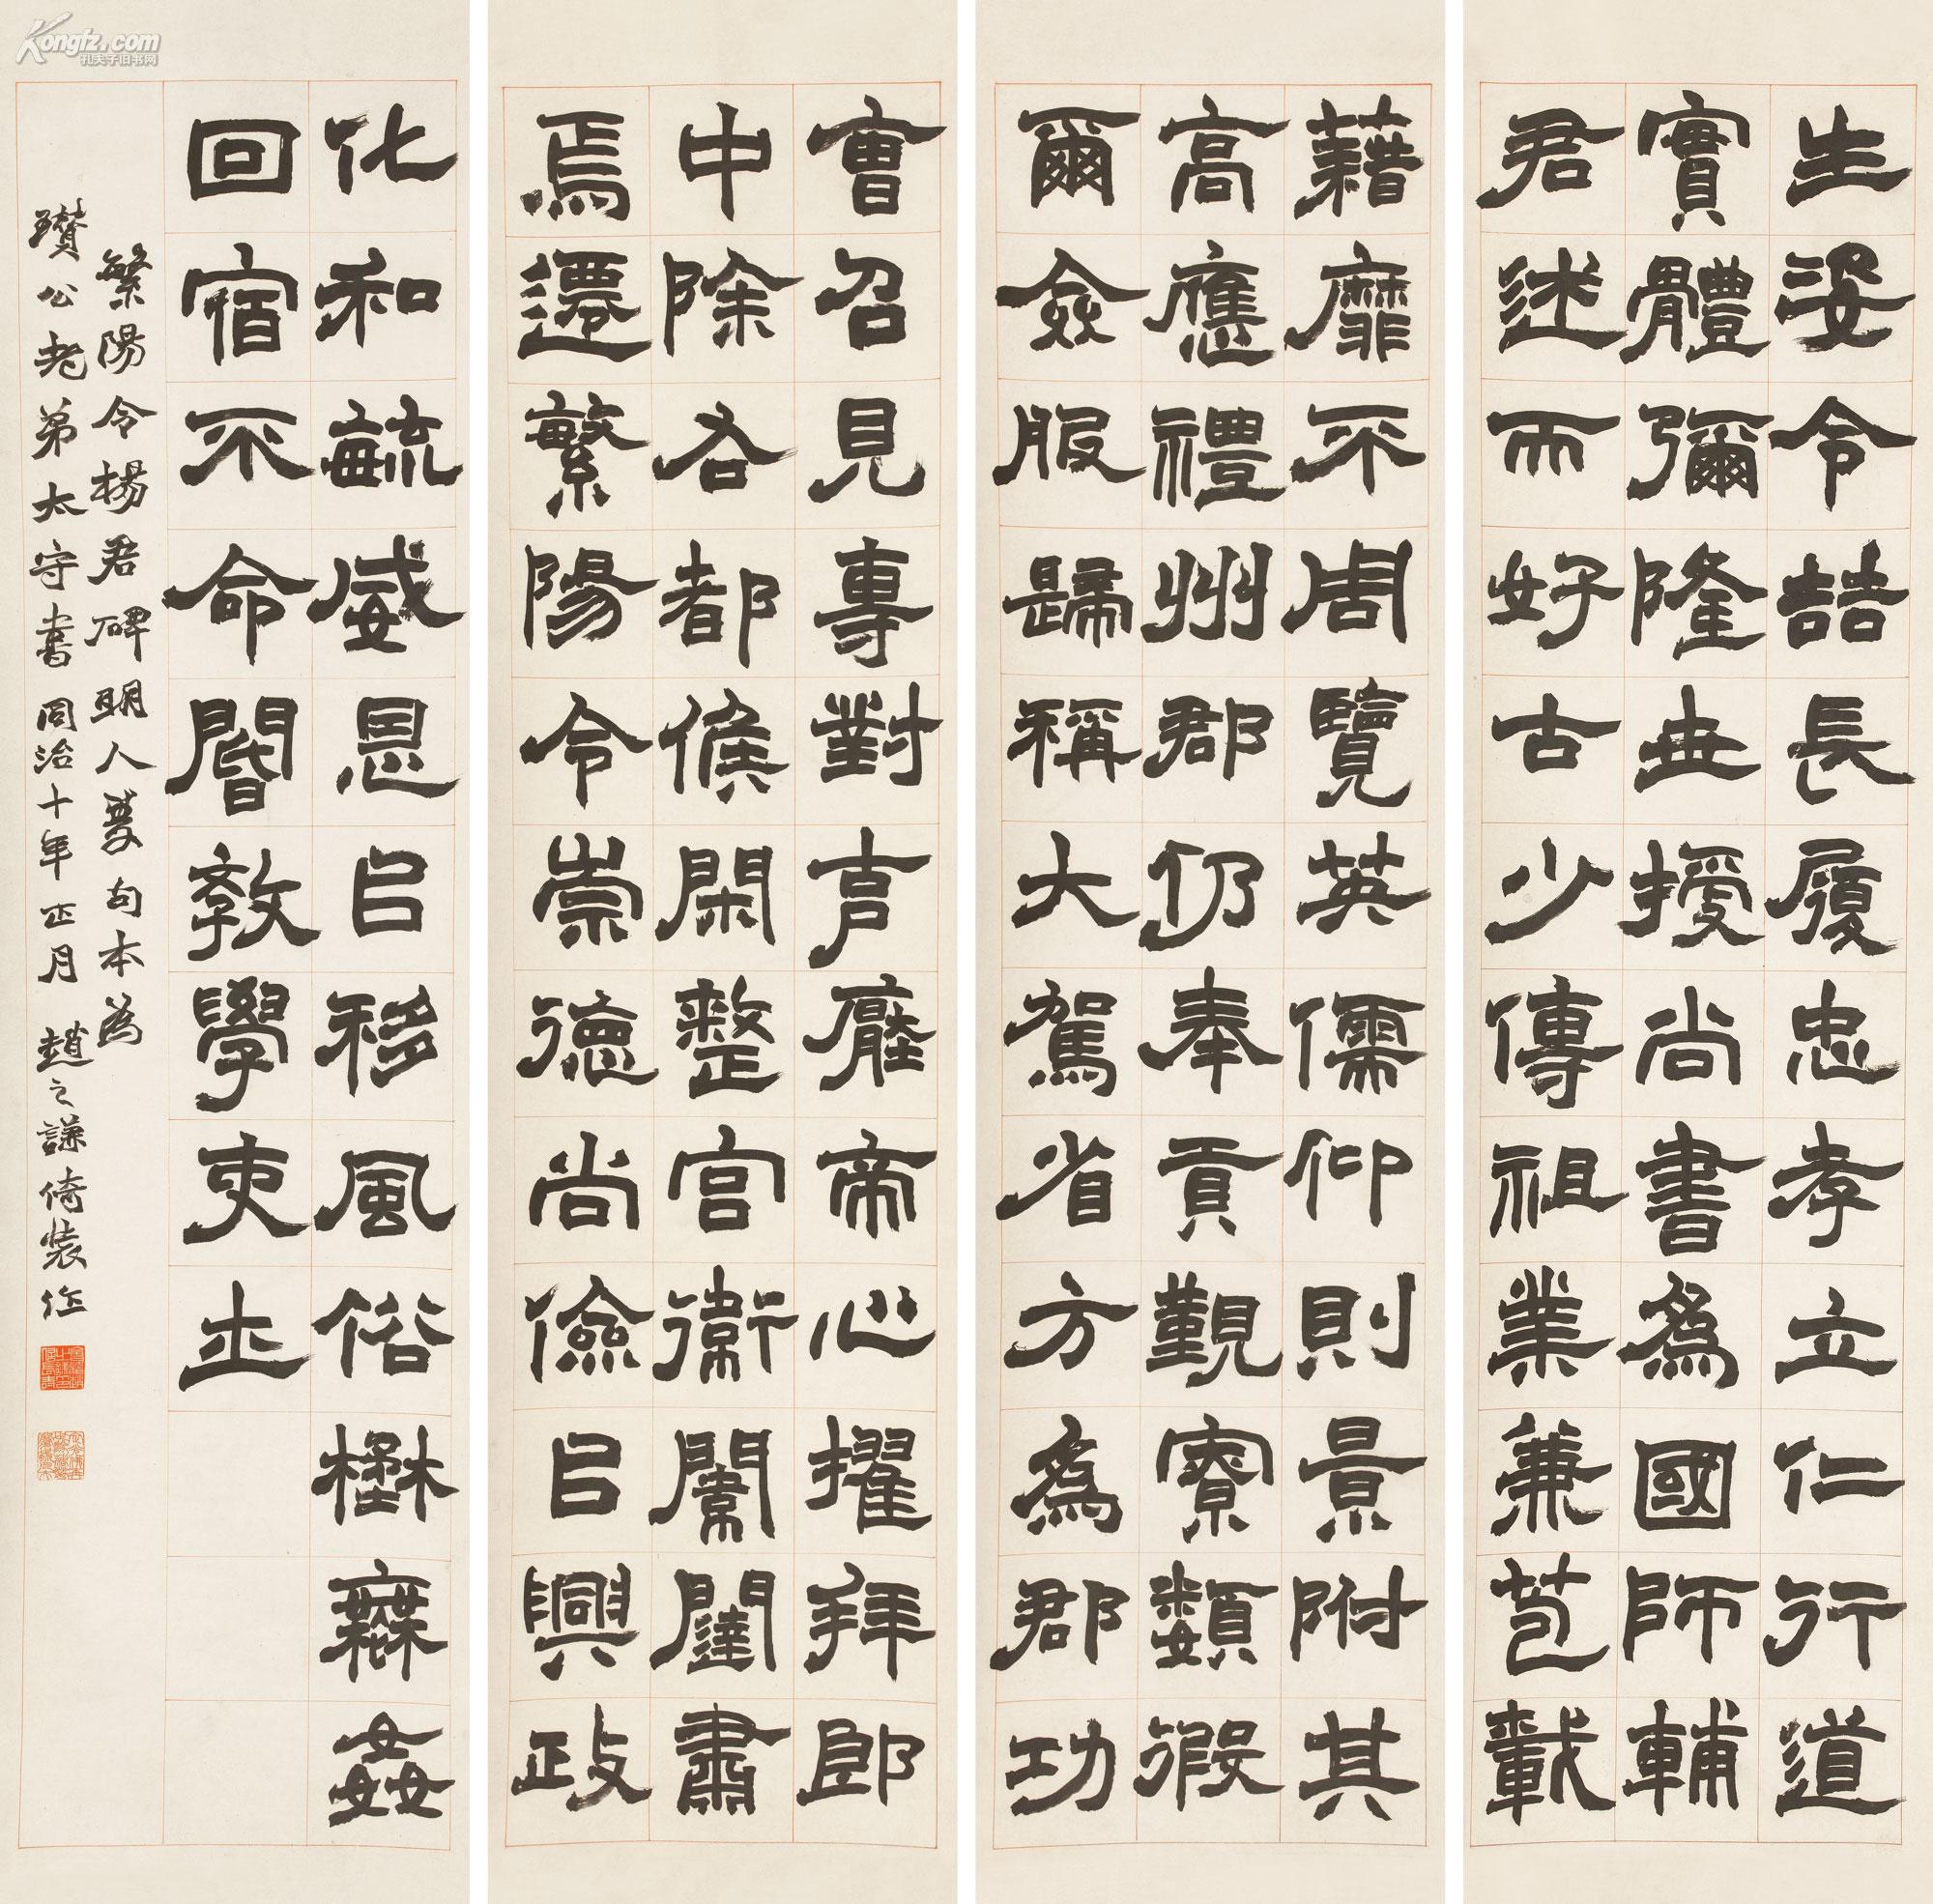 Kongfz.com
孔夫子旧书网
生姿令喆長履忠孝立仁行道
實體彌隆世授尚書爲國師輔
君述而好古少傳祖業兼苞載
藉靡不周覽英儒仰則景附其
高應禮州郡仍奉貢覲寮類徦
爾僉服歸稱大駕省方爲郡功
曹召見專對亯廱帝心擢拜郎
中除右都候閑整宮衛闈闥肅
焉遷繁陽令崇德尚儉㠯興政
化和毓威恩㠯移風俗姦
回宿不命閽敦學吏士
繁陽令楊君碑明人雙句本爲
瓚公老弟太守書 同治十年正月 趙之謙倚裝作